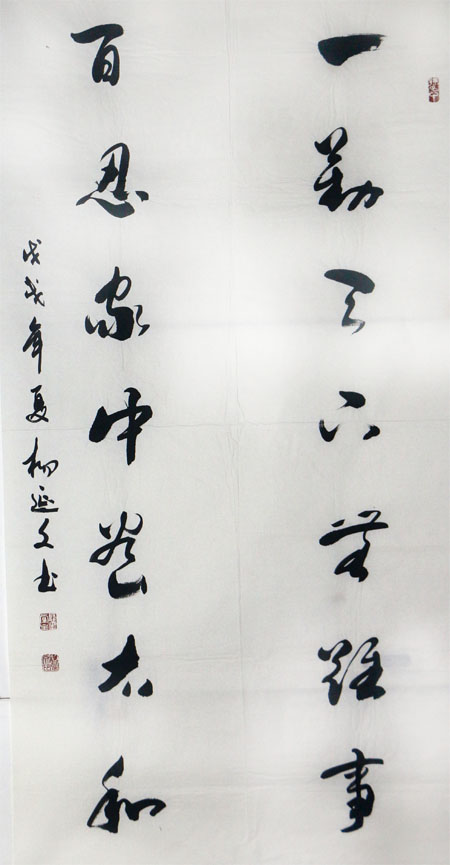 一勤天下無難事
百忍家中太和
戊戌年夏延文书